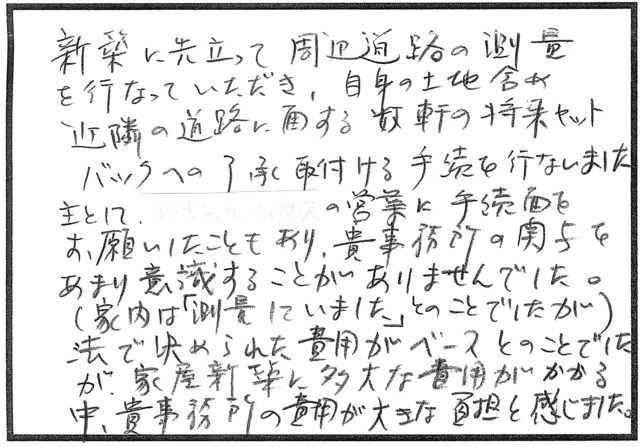 新築に先立って周辺道路の測量
を行なっていただき、自身の土地含め
近隣の道路に面する数軒の将来セット
バックへの了承取付ける手続を行ないました
主として、の営業に手続面を
お願いしたこともあり、貴事務所の関与を
あまり意識することがありませんでした。
(家内は「測量していました」とのことでしたが)
法で決められた費用がベースとのことでした
が、家屋新築に多大な費用がかかる
中、貴事務所の費用が大きな負担と感じました。